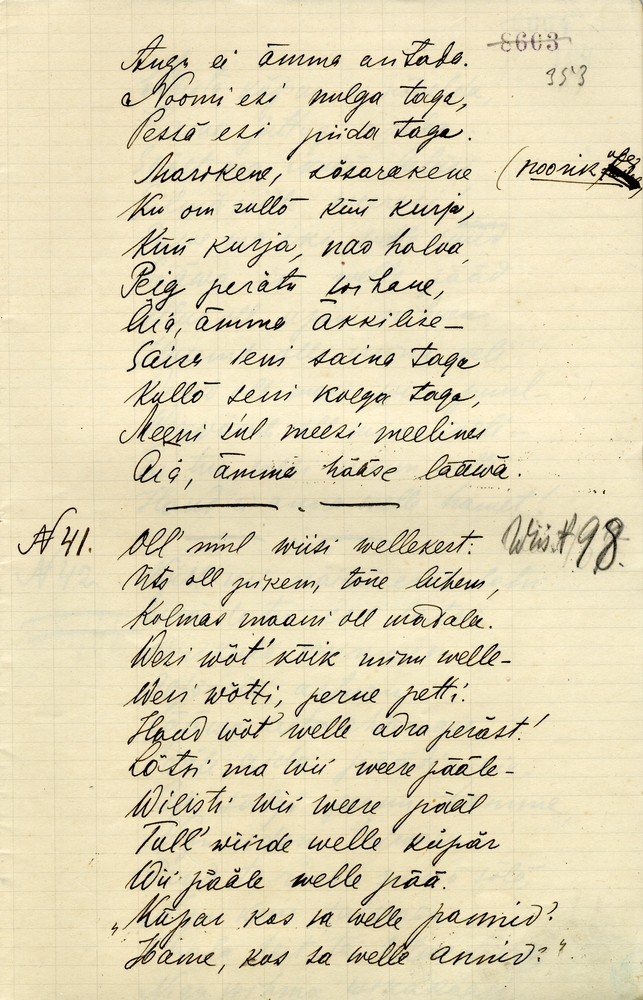 8603
353
Augu ei ämma autada.
Noomi esi nulga taga,
Pessä esi piida taga.
Marikene, sõsarakene (noorik,
Ku om sullõ küü kurja,
Küü kurja, nao halva,
Peig perätu
Äiä, ämmä äkkilise –
Saisa seni saina taga
Kullõ seni kolga taga,
Meeni sul meesi meelines
Äiä, ämmä hääse lääwä.
N 41. Oll' minl wiisi wellekest: Wiis N 98.
Üts oll pikem, tõne lühem,
Kolmas maani oll madala.
Wesi wõt' kõik minu welle –
Wesi wõtti, perue petti.
Haud wõt welle adra peräst!
Lätsi ma wii weere pääle –
Wilisti wii weere pääl
Tull' wiirde welle küpär
Wii pääle welle pää.
„Küpar kos sa welle pannid?
Hame, kos sa welle annid?"